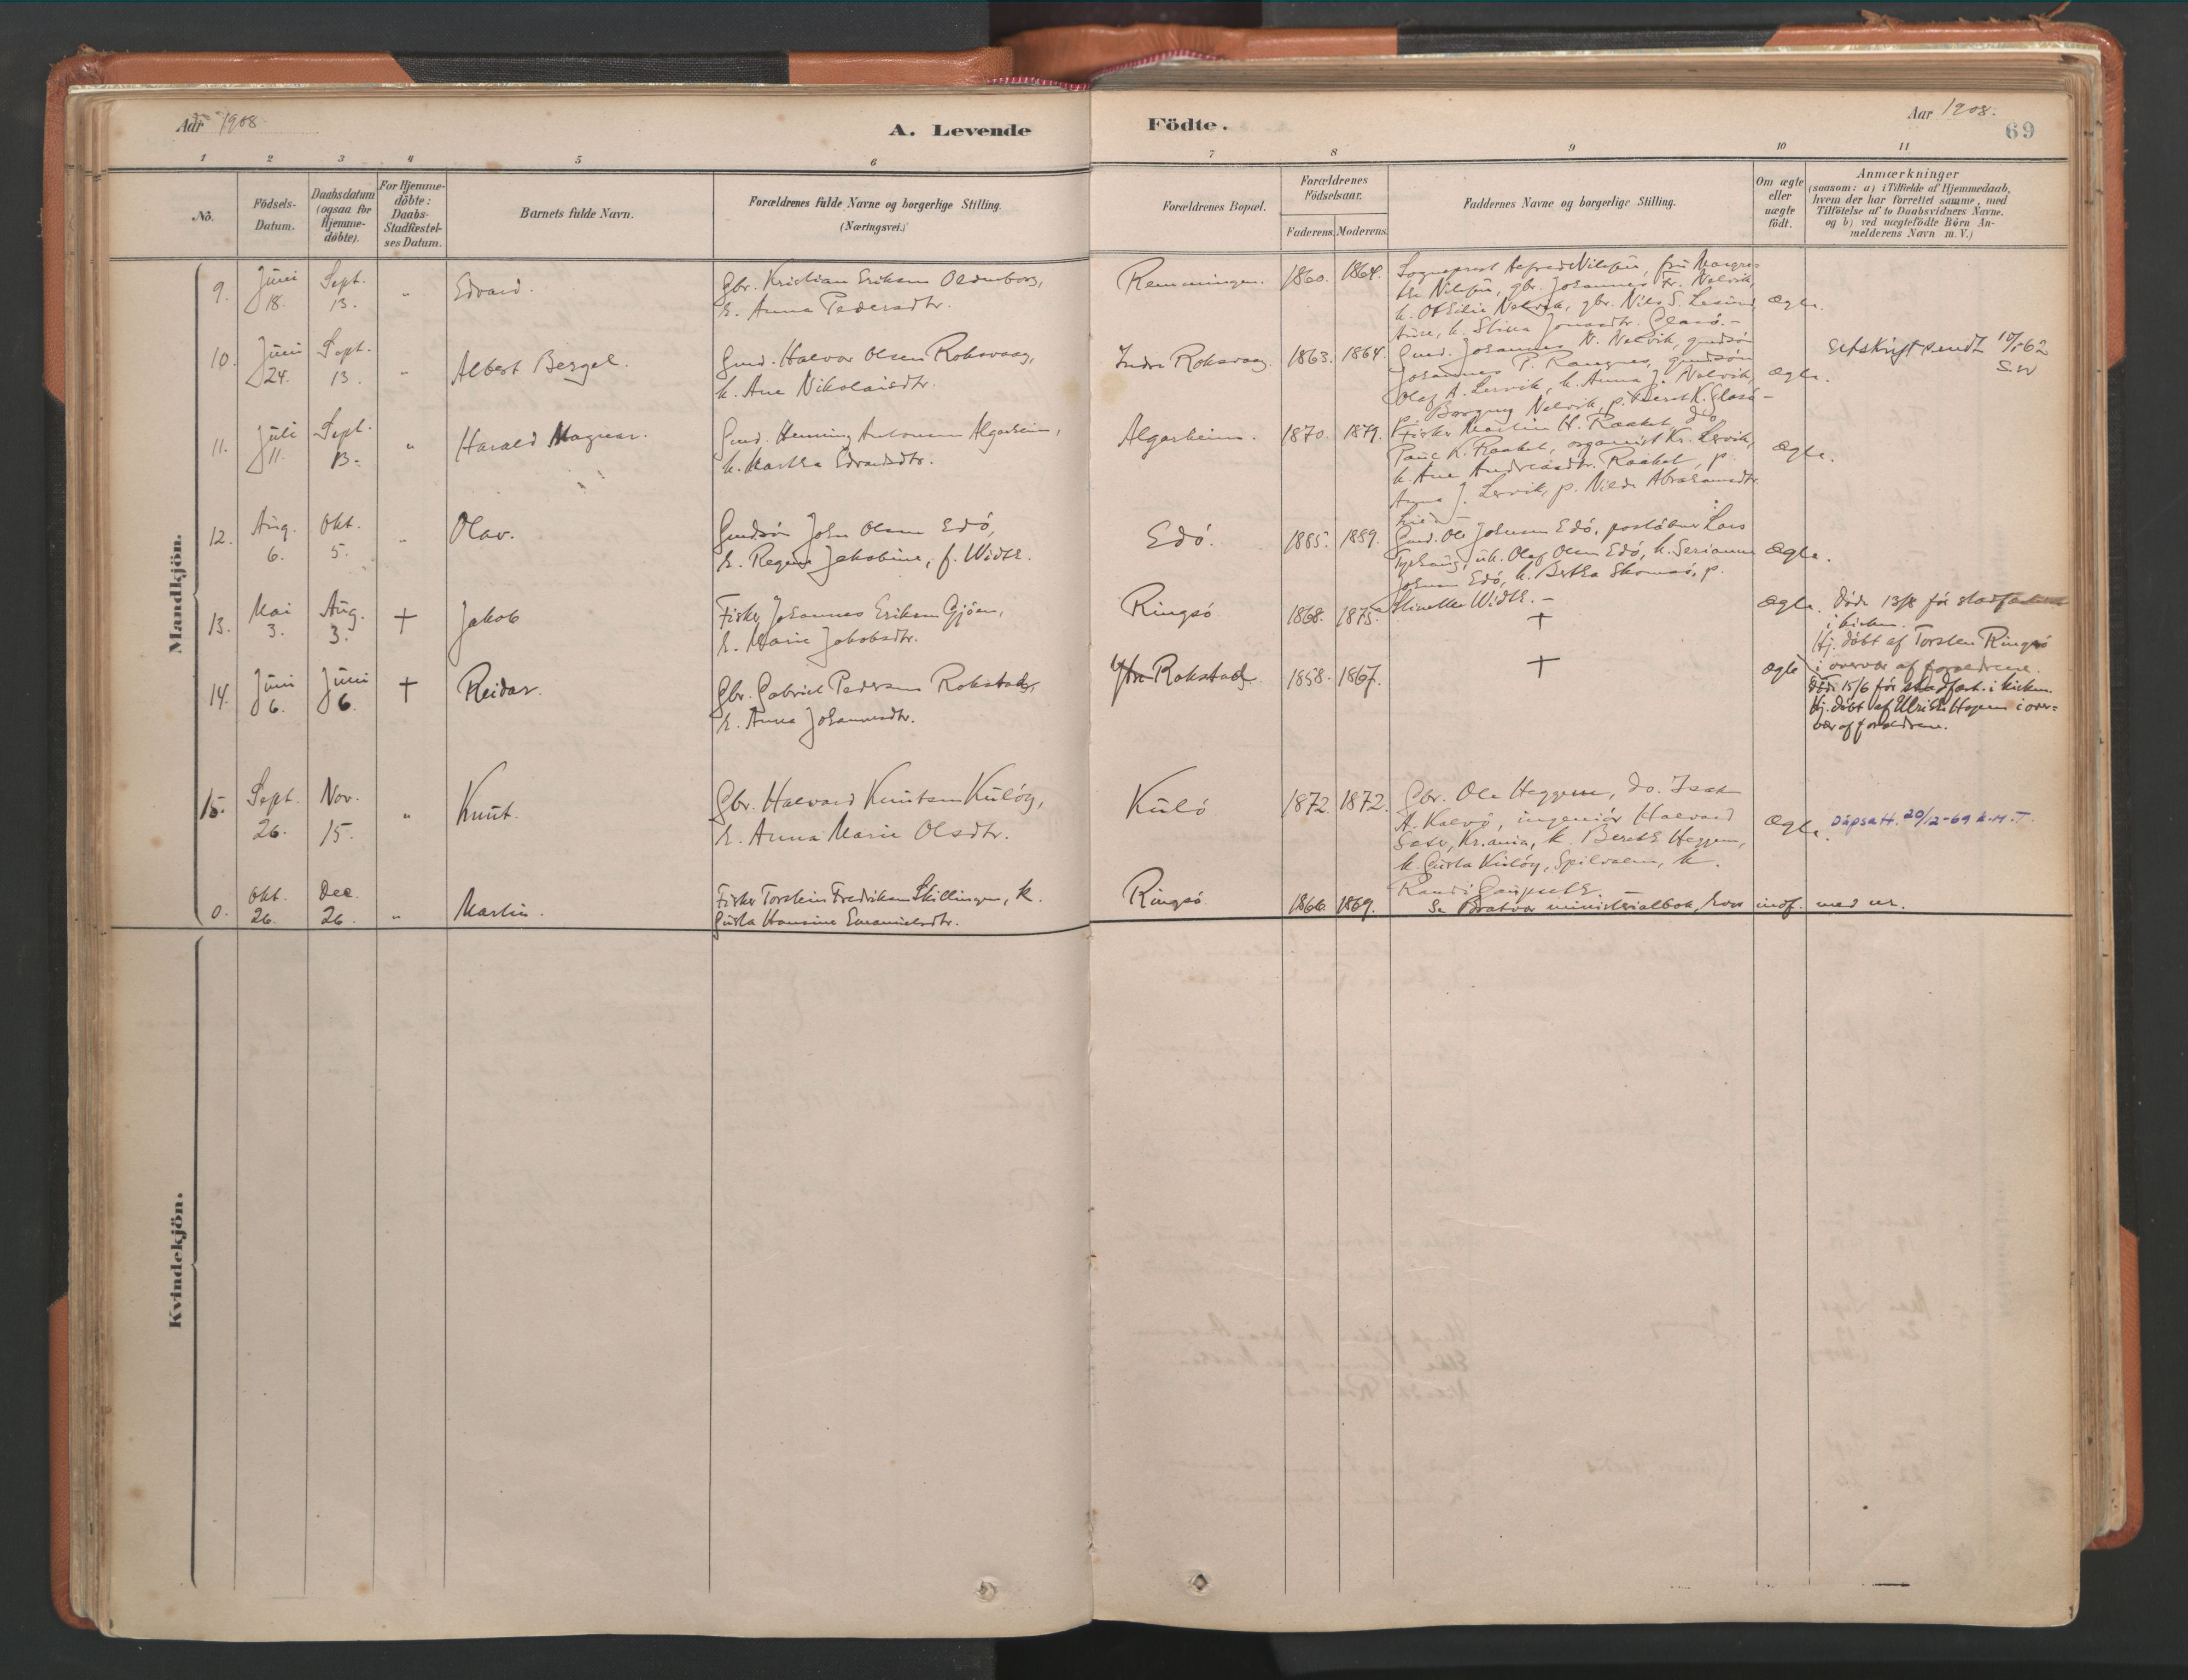 Aar 1908.
A. Levende
Födte.
Aar 1908.
69
1 2 3 4 5 6 7 8 9 10 11
No.
Födsels-Datum.
Daabsdatum (ogsaa for Hjemme-döbte).
For Hjemme-döbte: Daabs-Stadfæstel-ses Datum.
Barnets fulde Navn.
Forældrenes fulde Navne og borgerlige Stilling.
(Næringsvei.)
Forældrenes Bopæl.
Forældrenes Födselsaar.
Faderens. Moderens.
Faddernes Navne og borgerlige Stilling.
Om ægte eller uægte födt.
Anmærkninger
(saasom: a) i Tilfælde af Hjemmedaab,
hvem der har forrettet samme, med
Tilföielse af to Daabsvidners Navne.
og b) ved uægtefödte Börn An-
melderens Navn m. V.)
Mandkjön.
9. Juni 18. Sept. 13. " Edvard.
Gbr. Kristian Eriksen Oldenborg,
h. Anna Pedersdtr.
Remmingen. 1860. 1864.
Sogneprest Alfred Nilssen, fru Margre-
the Nilssen, gbr. Johannes Fr. Nelvik,
h. Othilie Nelvik, gbr. Nils S. Lesund,
Aure, h. Stina Jonasdtr. Glasö. -
Ægte.
10. Juni 24. Sept. 13. " Albert Bergel.
Gmd. Halvor Olsen Roksvaag,
h. Ane Nikolaisdtr.
Indre Roksvaag 1863. 1864.
Gmd. Johannes N. Nelvik, gmdsön
Johannes P. Rangnes, gmdsön
Olaf A. Lervik, h. Anna J. Nelvik,
p. Borgny Nelvik, p. K. Glasö -
Ægte.
Utskrift sendt 10/5-62
S.W
11. Juli 11. Sept. 13. " Harald Magnar.
Gmd. Henning Antonsen Algarheim,
h. Martha Edvardsdtr.
Algarheim. 1870. 1879.
Fisker Martin H. Raaket, do.
Paul K. Raaket, organist Kr. Lervik,
h. Ane Andreasdtr. Raaket, p.
Anna J. Lervik, p. Nilda Abrahamsdtr.
Ægte.
12. Aug. 6. Okt. 5. " Olav.
Gmdsön John Olsen Edö,
h. Regine Jakobine, f. Width.
Edö. 1885. 1889.
Gmd. Ole Johnsen Edö, postaabner Lars
Tyrhaug, uk. Olaf Olsen Edö, h. Serianna
Johnsen Edö, h. Bertha Skomsö, p.
Stinette Width. -
Ægte.
13. Mai 3. Aug. 3. + Jakob
Fisker Johannes Eriksen Gjöen,
h. Marie Jakobsdtr.
Ringsö 1868. 1875. +
Ægte. Döde 13/8 för stadfæstelse
i kirken.
Hj. döbt af Torsten Ringsö
i overvær af forældrene.
14. Juni 6. Juni 6. + Reidar.
Gbr. Gabriel Pedersen Rokstad,
h. Anna Johannesdtr.
Ytre Rokstad. 1858. 1867. +
Ægte Döde 15/6 för stadfæst. i kirken.
Hj. döbt af Ulrich Hopen i over-
vær af forældrene.
15. Sept. 26. Nov. 15. " Knut.
Gbr. Halvard Knutsen Kulöy,
h. Anna Marie Olsdtr.
Kulö 1872. 1872.
Gbr. Ole Heggem, do. Isak
A. Kalvö, ingeniör Halvard
Sæter, Kr.ania, h. Bereth Heggem,
h. Gurta Kulöy, k.
Randi
Ægte. Dåpsatt. 20/12-69 A.M.T.
0. Okt. 26. Dec. 26. " Martin.
Fisker Torstein Fredriksen Skillingen, h.
Gurta Hansine Emanuelsdtr.
Ringsö 1866. 1869.
Se Bratvær ministerialbok, hvor indf. med nr.
Kvindekjön.